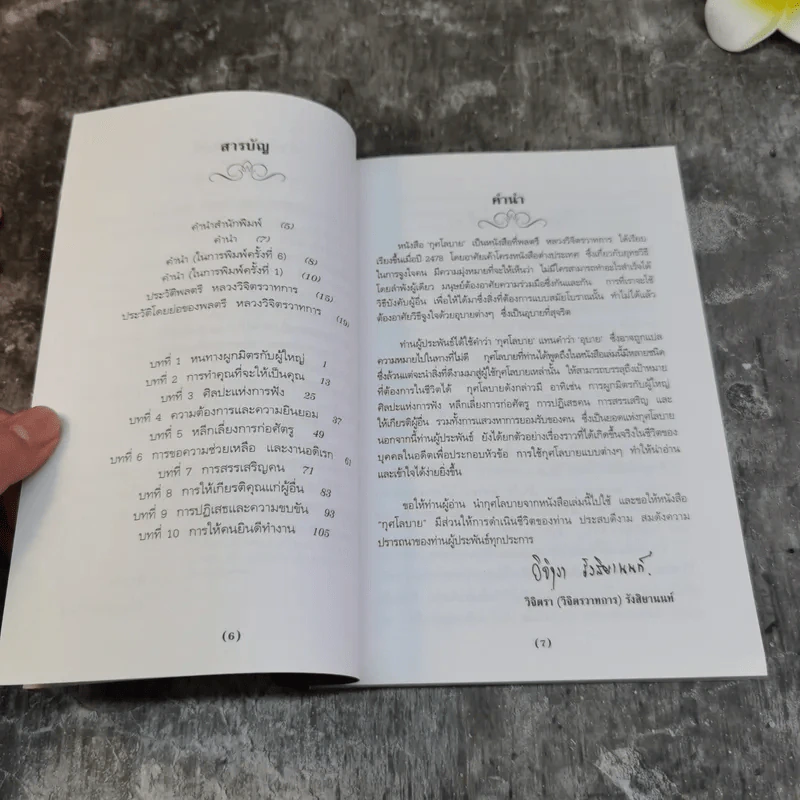 สารบัญ
คำนำสำนักพิมพ์ (5)
คำนำ (7)
คำนำ (ในการพิมพ์ครั้งที่ 6) (8)
คำนำ (ในการพิมพ์ครั้งที่ 1) (10)
ประวัติพลตรี หลวงวิจิตรวาทการ (15)
ประวัติโดยย่อของพลตรี หลวงวิจิตรวาทการ (19)
บทที่ 1 หนทางผูกมิตรกับผู้ใหญ่ 1
บทที่ 2 การทำคุณที่จะให้เป็นคุณ 13
บทที่ 3 ศิลปะแห่งการฟัง 25
บทที่ 4 ความต้องการและความยินยอม 37
บทที่ 5 หลีกเลี่ยงการก่อศัตรู 49
บทที่ 6 การขอความช่วยเหลือ และงานอดิเรก 61
บทที่ 7 การสรรเสริญคน 71
บทที่ 8 การให้เกียรติคุณแก่ผู้อื่น 83
บทที่ 9 การปฏิเสธและความขบขัน 93
บทที่ 10 การให้คนยินดีทำงาน 105
(6)
คำนำ
หนังสือ "กุศโลบาย" เป็นหนังสือที่พลตรี หลวงวิจิตรวาทการ ได้เรียบ
เรียงขึ้นเมื่อปี 2478 โดยอาศัยเค้าโครงหนังสือต่างประเทศ ซึ่งเกี่ยวกับยุทธวิธี
ในการจูงใจคน มีความมุ่งหมายที่จะให้เห็นว่า ไม่มีใครสามารถทำอะไรสำเร็จได้
โดยลำพังผู้เดียว มนุษย์ต้องอาศัยความร่วมมือซึ่งกันและกัน การที่เราจะใช้
วิธีบังคับผู้อื่น เพื่อให้ได้มาซึ่งสิ่งที่ต้องการแบบสมัยโบราณนั้น ทำไม่ได้แล้ว
ต้องอาศัยวิธีจูงใจด้วยอุบายต่างๆ ซึ่งเป็นอุบายที่สุจริต
ท่านผู้ประพันธ์ได้ใช้คำว่า "กุศโลบาย" แทนคำว่า "อุบาย" ซึ่งอาจถูกแปล
ความหมายไปในทางที่ไม่ดี กุศโลบายที่ท่านได้พูดถึงในหนังสือเล่มนี้มีหลายชนิด
ซึ่งล้วนแต่จะนำสิ่งที่ดีงามมาสู่ผู้ใช้กุศโลบายเหล่านั้น ให้สามารถบรรลุถึงเป้าหมาย
ที่ต้องการในชีวิตได้ กุศโลบายดังกล่าวมี อาทิเช่น การผูกมิตรกับผู้ใหญ่
ศิลปะแห่งการฟัง หลีกเลี่ยงการก่อศัตรู การปฏิเสธคน การสรรเสริญ และ
ให้เกียรติผู้อื่น รวมทั้งการแสวงหาการยอมรับของคน ซึ่งเป็นยอดแห่งกุศโลบาย
นอกจากนี้ท่านผู้ประพันธ์ ยังได้ยกตัวอย่างเรื่องราวที่ได้เกิดขึ้นจริงในชีวิตของ
บุคคลในอดีตเพื่อประกอบหัวข้อ การใช้กุศโลบายแบบต่างๆ ทำให้น่าอ่าน
และเข้าใจได้ง่ายยิ่งขึ้น
ขอให้ท่านผู้อ่าน นำกุศโลบายจากหนังสือเล่มนี้ไปใช้ และขอให้หนังสือ
"กุศโลบาย" มีส่วนให้การดำเนินชีวิตของท่าน ประสบดีงาม สมดังความ
ปรารถนาของท่านผู้ประพันธ์ทุกประการ
วิจิตรา รังสิยานนท์
วิจิตรา (วิจิตรวาทการ) รังสิยานนท์
(7)